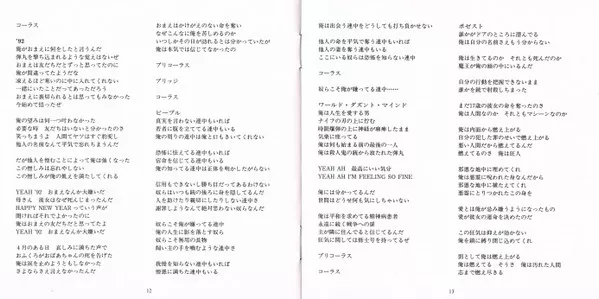 コーラス
'92
俺がおまえに何をしたと言うんだ
弾丸を撃ち込まれるような覚えはないぜ
おまえは友だちだとずっと思ってたのに
俺が間違ってたようだな
凍えるほど寒いのに中に入れてくれない
一緒にいたことだってあっただろう
おまえに裏切られるとは思ってもみなかった
今始めて悟ったぜ
俺の望みは何一つ叶わなかった
必要な時 友だちはいないと分かったのさ
笑っちまうよ 人間てヤツはすぐ豹変し
他人の美点なんて平気で忘れちまうんだ
だが他人を憎むことによって俺は強くなった
この憎しみは忘れやしない
この憎しみが俺の飢えを満たしてくれる
YEAH '92 おまえなんか大嫌いだ
母さん 彼女はなぜ死んじまったんだ
HAPPY NEW YEAR っていう声が
聞ければそれでよかったのに
俺はおまえの友だちだと思ってたよ
YEAH '92 おまえなんか大嫌いだ
4月のある日 哀しみに満ちた声で
おふくろがおばあちゃんの死を告げた
俺は涙を止めようともしなかった
さよならさえ言えなかったんだ
12
おまえはかけがえのない命を奪い
なぜこんなに俺を苦しめるのか
いつしかその日が訪れるとは分かっていたが
俺は本気では信じてなかったのさ
プリコーラス
ブリッジ
コーラス
ピープル
真実を言わない連中もいれば
若者に腹を立ててる連中もいる
俺の周りの連中は俺と口もきいてくれない
恐怖に怯えてる連中もいれば
宿命を信じてる連中もいる
俺の知ってる連中は正体を明かしたがらない
信用もできないし勝ち目だってあるわけない
奴らはいつも銃の後ろに身を隠してるんだ
人を助けたり親切にしたりしない連中さ
謝罪しようなんて絶対思わない奴らなんだ
奴らこそ俺が嫌ってる連中
俺の人生に影を落とす奴ら
奴らこそ無用の長物
飼い主の手を噛むような連中さ
我慢を知らない連中もいれば
憎悪に満ちた連中もいる
俺は出会う連中をどうしても打ち負かせない
他人の命を平気で奪う連中もいれば
他人の妻を奪う連中もいる
ここにいる奴らは恐怖を知らない連中
コーラス
奴らこそ俺が嫌ってる連中……
ワールド・ダズント・マインド
俺は人生を愛する男
ナイフの刃の上に佇む
時限爆弾の上に神経が麻痺したまま
気楽に座ってる
俺は何も始まる前の最後の一人
俺は殺人鬼の銃から放たれた弾丸
YEAH AH 最高にいい気分
YEAH AH I'M FEELING SO FINE
俺には分かってるんだ
世間はどうせ何も気にしちゃいない
俺は平和を求てる精神病患者
永遠に続く戦争への扉
主が隣に住んでると信じてるんだ
狂気に関しては修士号を持ってるぜ
プリコーラス
コーラス
ポゼスト
誰かがドアのところに潜んでる
俺は自分の名前さえもう分からない
俺は生きてるのか それとも死んだのか
魔王が俺の頭の中にいるんだ
自分の行動を把握できないまま
誰かを銃で射殺しちまった
まだ17歳の彼女の命を奪ったのさ
俺は人間なのか それともマシーンなのか
俺は内面から燃え上がる
自分の犯した罪のせいで燃え上がる
悪い人間だから燃えてるんだ
燃えてるのさ 俺は狂人
邪悪な地に埋めてくれ
俺は悪霊に呪われた身だから
邪悪な地中に横たえてくれ
悪霊にとりつかれたこの身を
愛とは俺が忌み嫌うようになったもの
愛が彼女の運命を決めたのだ
この狂気は抑えが効かない
俺を鎖に縛り閉じ込めてくれ
罰として俺は燃え上がる
俺は燃えてる そうさ 俺は汚れた人間
芯まで燃え尽きる
13